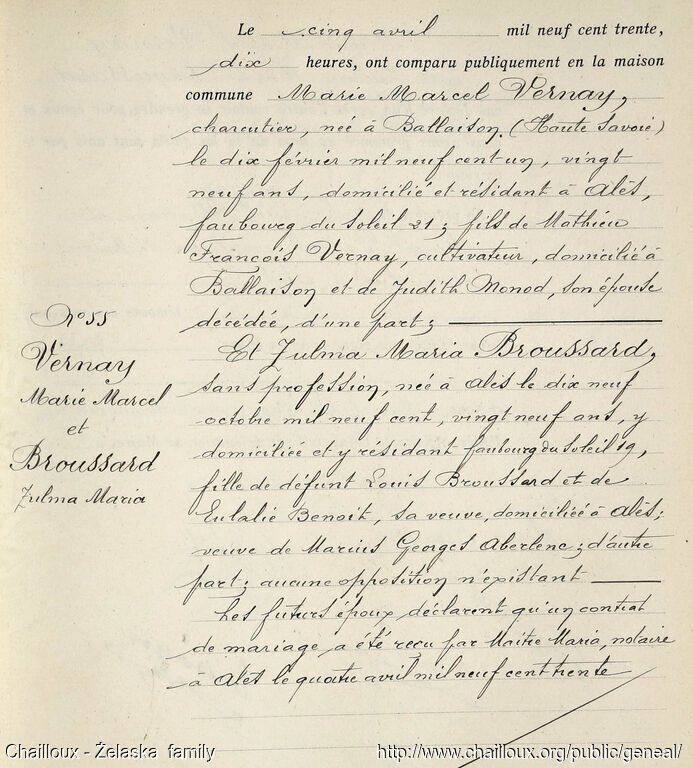 Le cinq avril mil neuf cent trente,
dix heures, ont comparu publiquement en la maison
commune Marie Marcel Vernay,
charcutier, né à Ballaison (Haute Savoie)
le dix février mil neuf cent un, vingt
neuf ans, domicilié et résidant à Alès,
faubourg du Soleil 21; fils de Mathieu
François Vernay, cultivateur, domicilié à
Ballaison et de Judith Monod, son épouse
décédée, d'une part;
Et Zulma Maria Broussard,
sans profession, née à Alès le dix neuf
octobre mil neuf cent, vingt neuf ans, y
domiciliée et y résidant faubourg du Soleil 19,
fille de défunt Louis Broussard et de
Eulalie Benoit, sa veuve, domiciliée à Alès;
veuve de Marius Georges Aberlenc; d'autre
part; aucune opposition n'existant
Les futurs époux déclarent qu'un contrat
de mariage a été reçu par Maitre Maria, notaire
à Alès le quatre avril mil neuf cent trente
N° 55
Vernay
Marie Marcel
et
Broussard
Zulma Maria
Chailloux - Želaska family
http://www.chailloux.org/public/geneal/